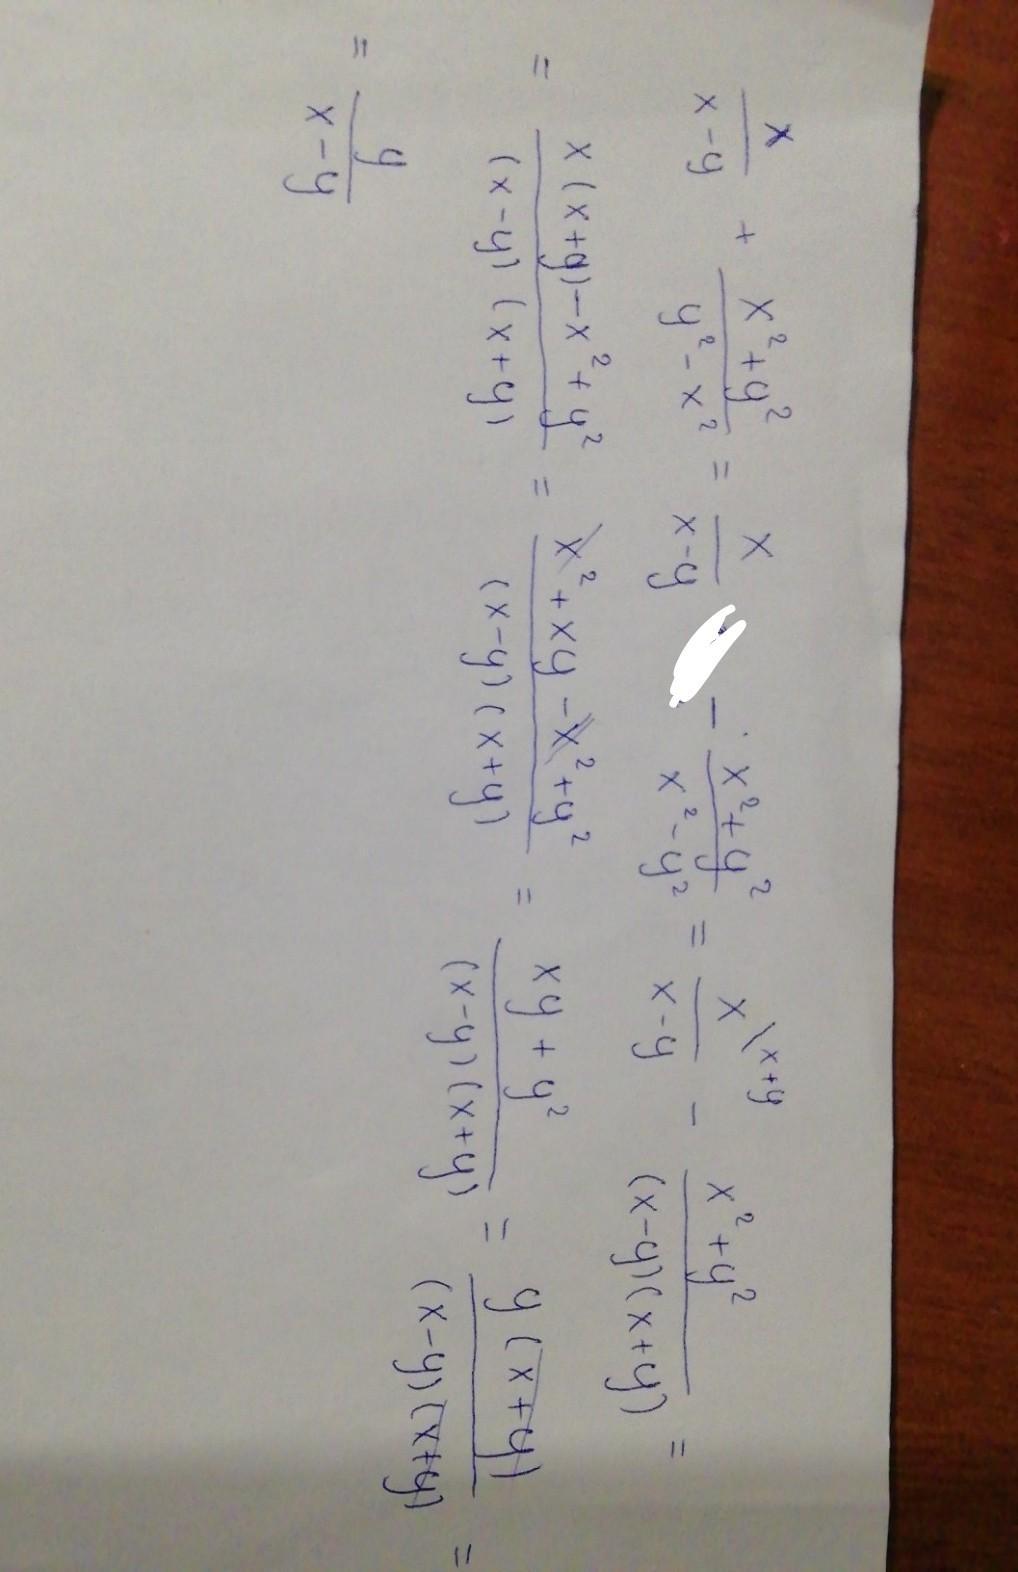 x/(x-y) + (x²+y²)/(y²-x²) = x/(x-y) - (x²+y²)/(x²-y²) = x\x+y/(x-y) - (x²+y²)/((x-y)(x+y)) =
= (x(x+y)-x²+y²)/((x-y)(x+y)) = (x²+xy-x²+y²)/((x-y)(x+y)) = (xy+y²)/((x-y)(x+y)) = y(x+y)/((x-y)(x+y)) =
= y/(x-y)